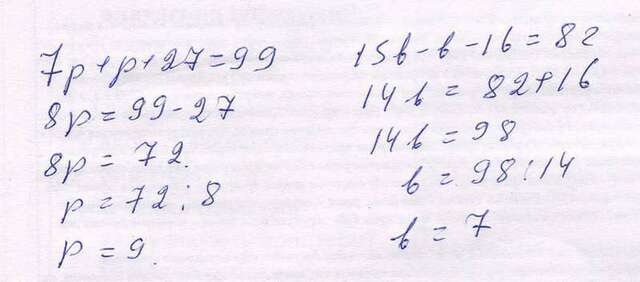 7p+p+27=99
8p=99-27
8p=72.
p=72:8
p=9.
15b-b-16=82
14b=82+16
14b=98
b=98:14
b=7